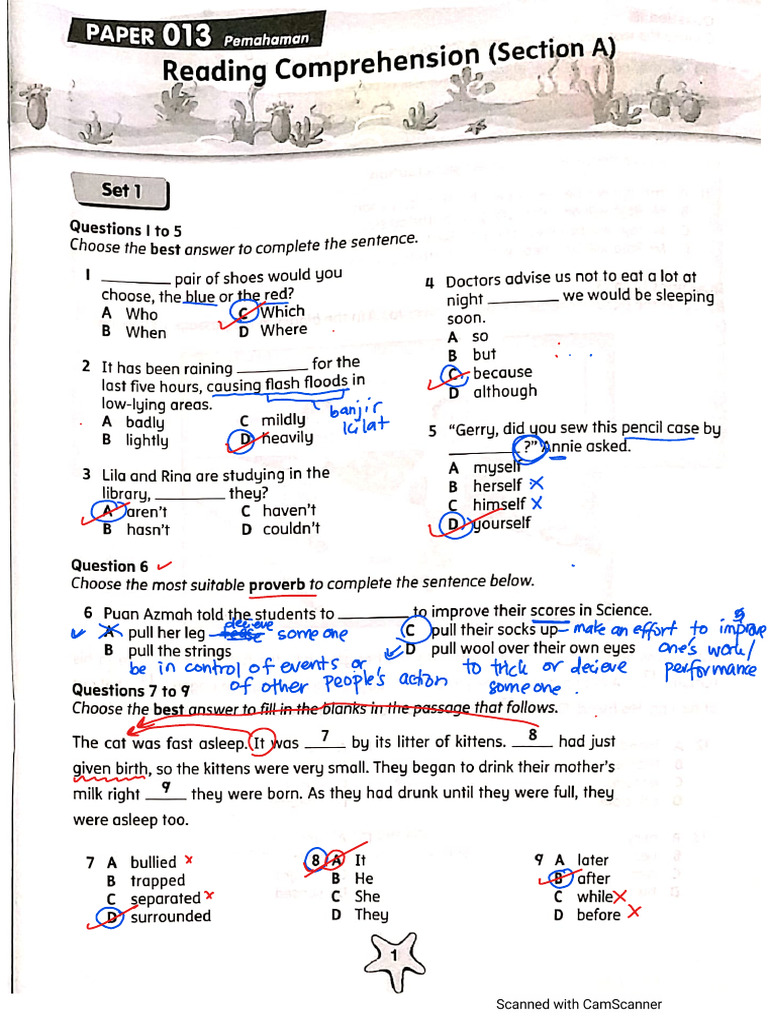 PAPER 013 Pemahaman
Reading Comprehension (Section A)
Set 1
Questions 1 to 5
Choose the best answer to complete the sentence.
1 ________ pair of shoes would you
choose, the blue or the red?
A Who
C Which
B When
D Where
2 It has been raining ________ for the
last five hours, causing flash floods in
low-lying areas.
banjir
kilat
A badly
C mildly
B lightly
D heavily
3 Lila and Rina are studying in the
library, ________ they?
A aren't
C haven't
B hasn't
D couldn't
4 Doctors advise us not to eat a lot at
night ________ we would be sleeping
soon.
A so
B but
C because
D although
5 "Gerry, did you sew this pencil case by
________?" Annie asked.
A myself
B herself x
C himself x
D yourself
Question 6
Choose the most suitable proverb to complete the sentence below.
6 Puan Azmah told the students to ________ to improve their scores in Science.
A pull her leg – decieve someone
C pull their socks up – make an effort to improve
one's work/
performance
B pull the strings
be in control of events or
of other people's action
D pull wool over their own eyes
to trick or decieve
someone.
Questions 7 to 9
Choose the best answer to fill in the blanks in the passage that follows.
The cat was fast asleep. It was 7 by its litter of kittens. 8 had just
given birth, so the kittens were very small. They began to drink their mother's
milk right 9 they were born. As they had drunk until they were full, they
were asleep too.
7 A bullied x
B trapped
C separated x
D surrounded
8 A It
B He
C She
D They
9 A later
B after
C while x
D before x
1
Scanned with CamScanner